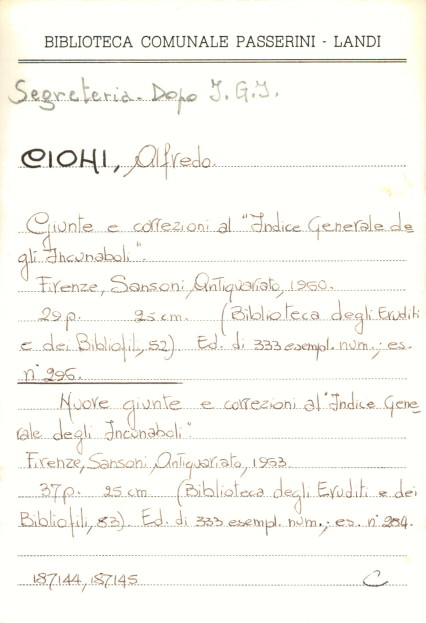 BIBLIOTECA COMUNALE PASSERINI - LANDI
Segreteria. Dopo I.G.I.
CIONI, Alfredo.
Giunte e correzioni al "Indice Generale de
gli Incunaboli".
Firenze, Sansoni, Antiquariato, 1960.
29 p. 25 cm. (Biblioteca degli Eruditi
e dei Bibliofili, 52). Ed. di 333 esempl. num.; es.
n° 296.
Nuove giunte e correzioni al "Indice Gene-
rale degli Incunaboli".
Firenze, Sansoni, Antiquariato, 1963.
37 p. 25 cm (Biblioteca degli Eruditi e dei
Bibliofili, 83). Ed. di 333 esempl. num.; es. n° 284.
187144, 187145 C